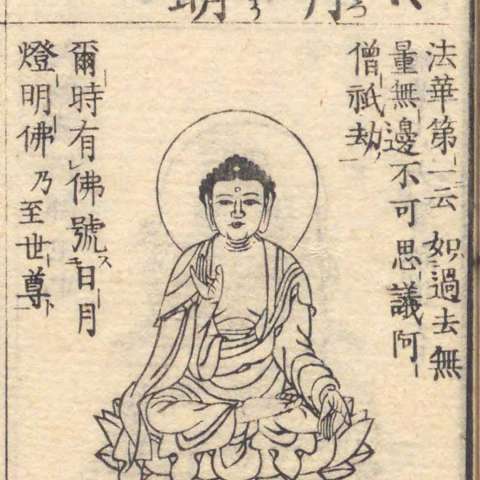 法華第一云如過去無
量無邊不可思議阿
僧祇劫
爾時有佛號日月
燈明佛乃至世尊